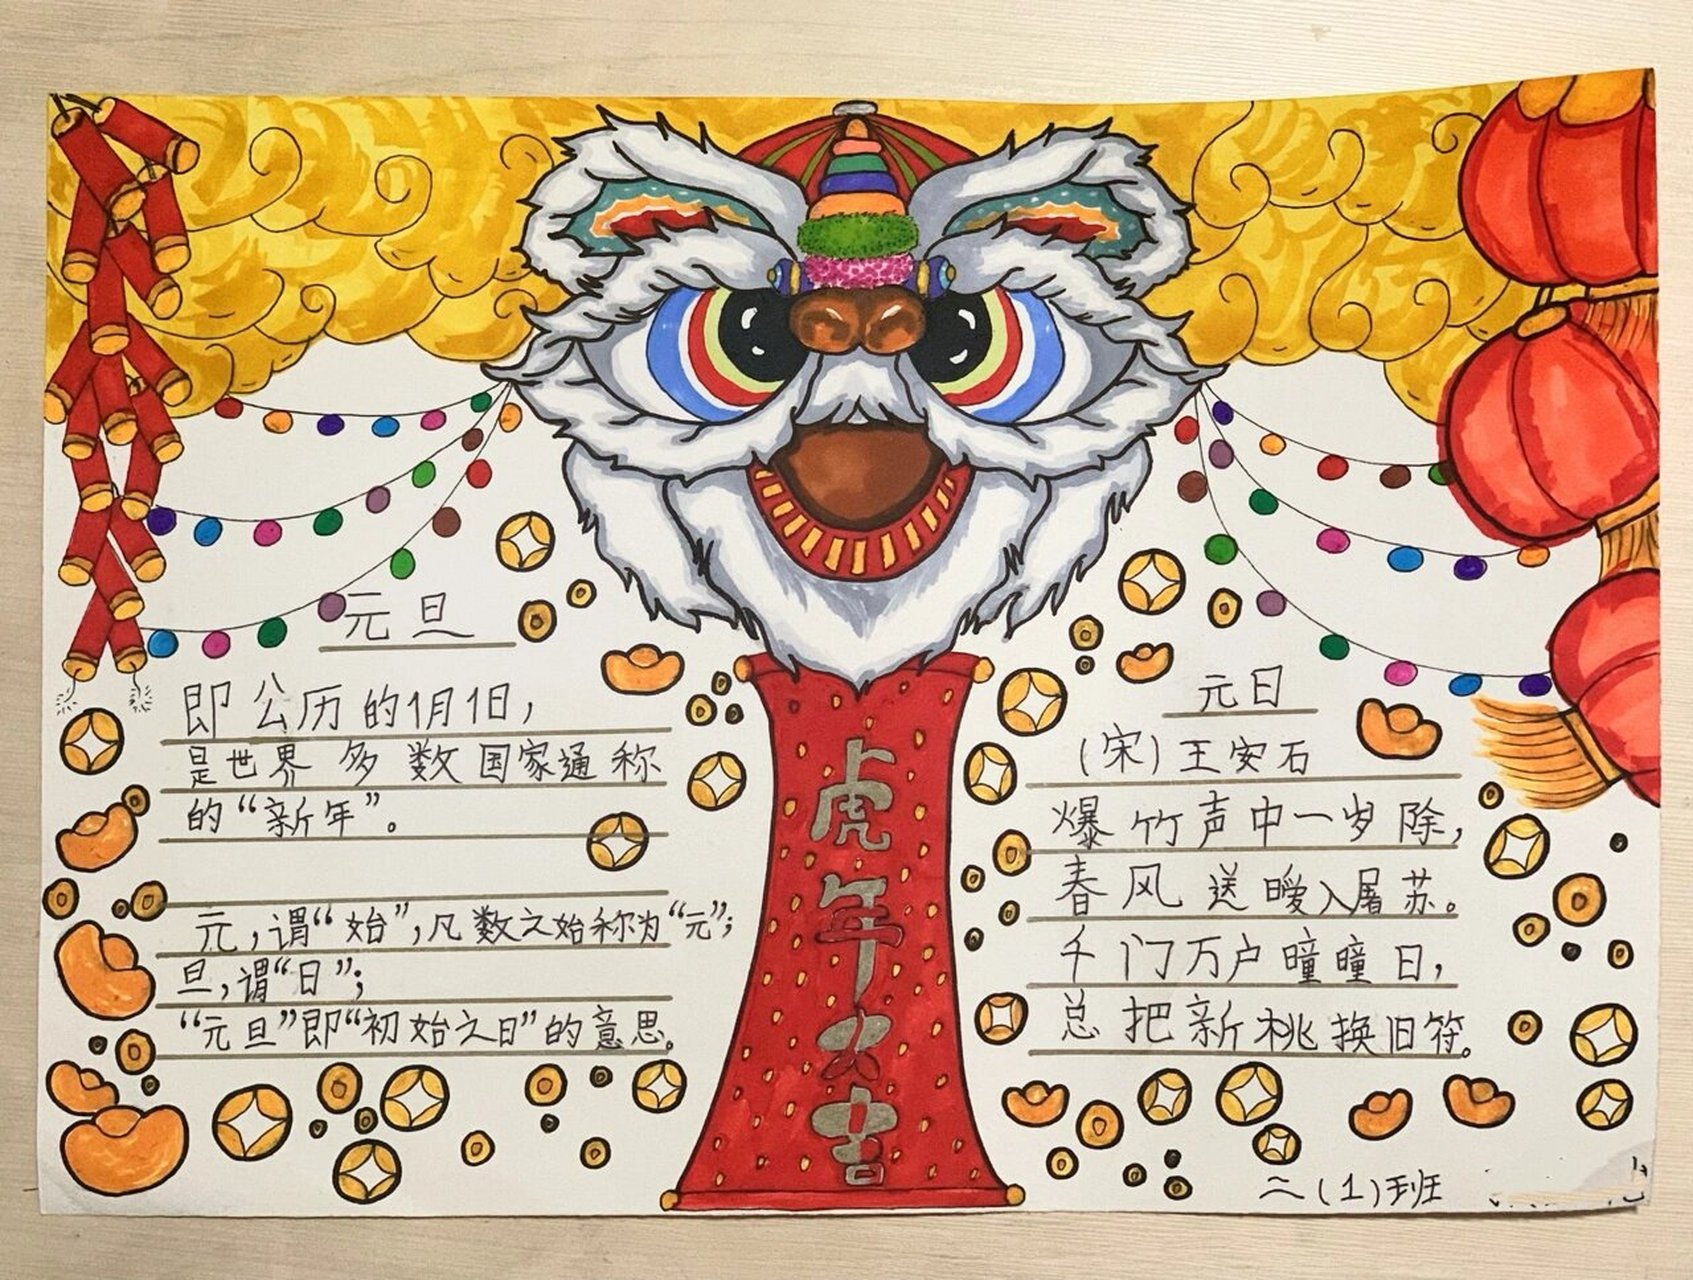 元旦
即公历的1月1日，
是世界多数国家通称
的“新年”。
元，谓“始”，凡数之始称为“元”；
旦，谓“日”；
“元旦”即“初始之日”的意思。
虎年大吉
元日
(宋)王安石
爆竹声中一岁除，
春风送暖入屠苏。
千门万户曈曈日，
总把新桃换旧符。
二(1)班